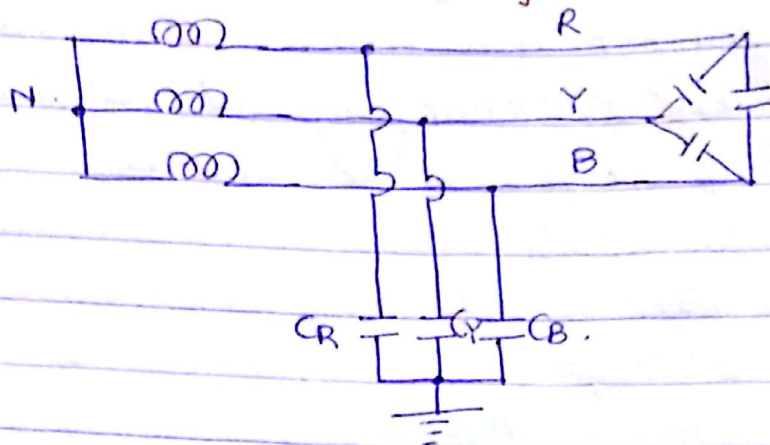 R
N. Y
B
CR CY CB.